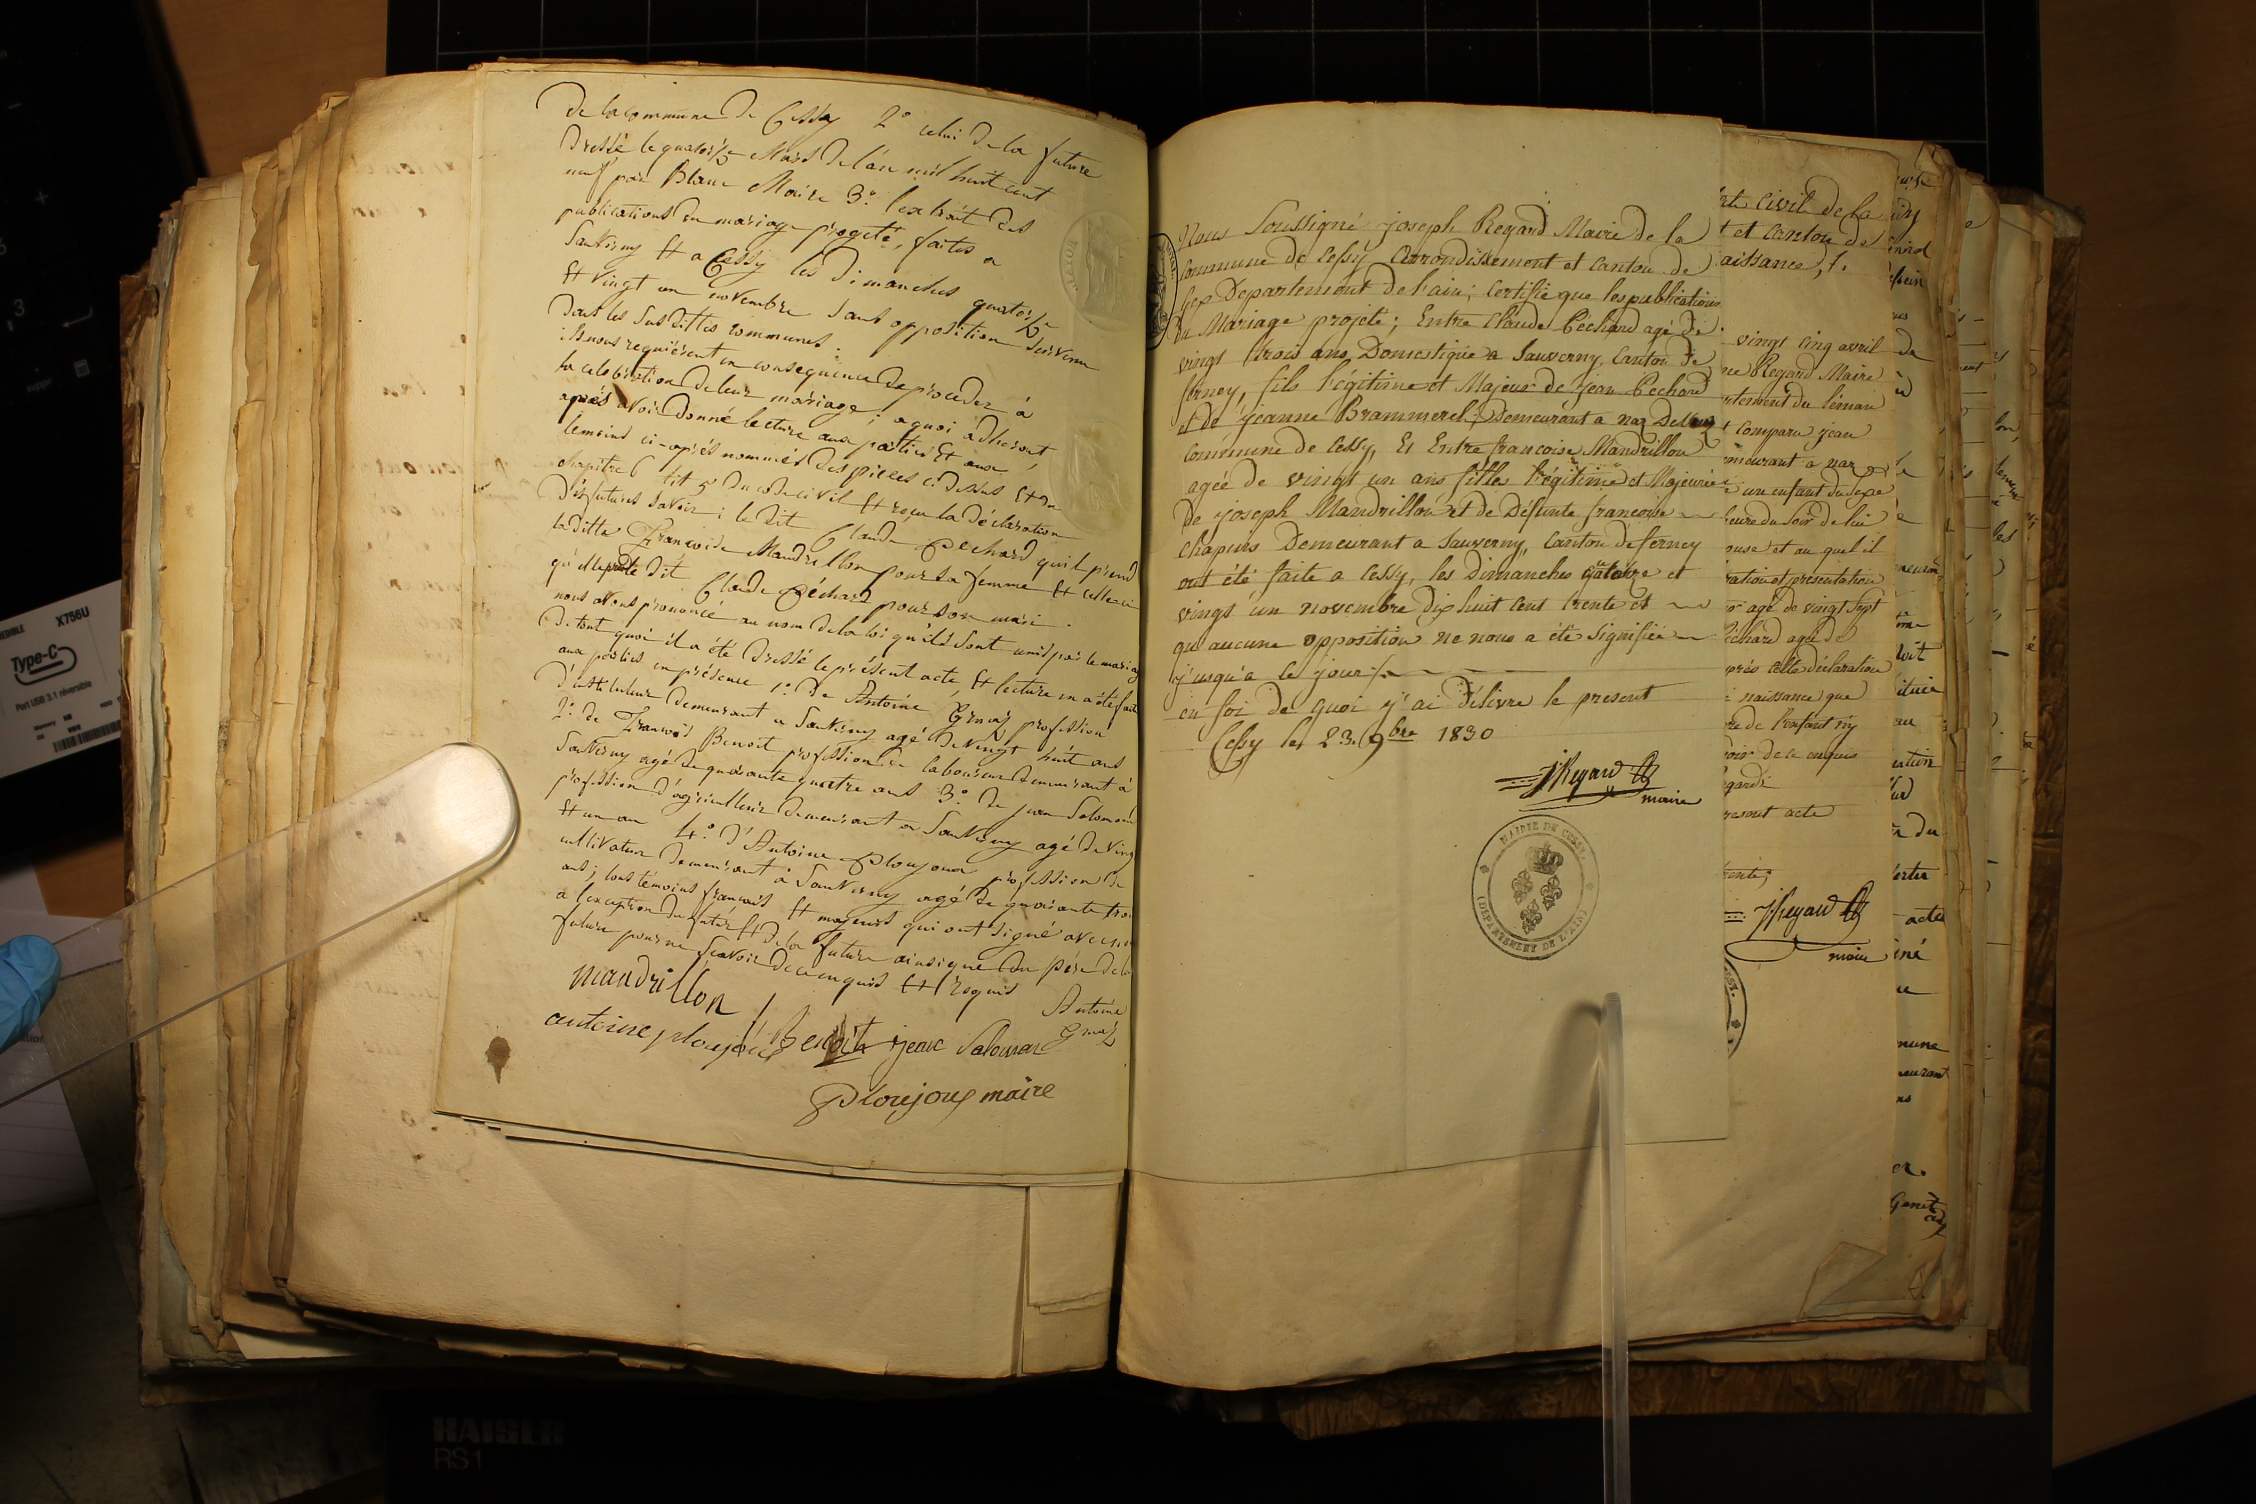 de la commune de Cessy 2° celui de la future
dressé le quatorze Mars de l'an mil huit cent
neuf par Blanc Maire 3° l'extrait des
publications du mariage progeté, faites a
Sauverny Et a Cessy les Dimanches quatorze
Et vingt un novembre sans opposition survenu
dans les susdittes communes.
ils nous requièrent en conséquence de procéder à
la célébration de leur mariage; a quoi adhérant,
après avoir donné lecture aux parties Et aux
temoins ci-après nommés des pieces ci dessus Et du
chapitre 6 tit 5 du code civil Et reçu la déclaration
des futurs savoir; le dit Claude Pechard qu'il prend
la ditte Françoise Mandrillon pour sa femme Et celle ci
qu'elle prend le dit Claude Péchard pour son mari.
nous avons prononcé au nom de la loi qu'ils sont unis par le mariag
De tout quoi il a été dressé le présent acte, Et lecture en a été fait
aux parties en présence 1° de Antoine Gruaz profession
d'instituteur demeurant a Sauverny agé de vingt huit ans
2° de François Benoit profession de laboureur demeurant à
Sauverny agé de quarante quatre ans 3° de jean Salomon
profession d'agriculteur demeurant a Sauverny agé de ving
Et un an 4° d'Antoine Ploujoux profession de
cultivateur demeurant à Sauverny agé de quarante troi
ans; tous témoins français Et majeurs qui ont signé avec nous
a l'exception du futur Et de la future ainsi que du père de la
future pour ne scavoir de ce enquis Et requis
mandrillon
Antoine
Gruaz
antoine ploujoux Benoit jean Salomon
Ploujoux maire
Nous Soussigné joseph Regard Maire de la
commune de Cessy Arrondissement et canton de
Gex Departement de l'ain; certifie que les publications
du Mariage projeté; Entre Claude Pechard agé de
vingt trois ans, Domestique a Sauverny, Canton de
ferney, fils légitime et Majeur de jean Pechard
et de jeanne Brammerel; Demeurant a naz
commune de Cessy, Et Entre françoise Mandrillon
agée de vingt un ans fille légitime et Majeure
de joseph Mandrillon et de Défunte françoise
chapuis Demeurant a Sauverny, Canton de ferney
ont été faite a Cessy, les Dimanches quatorze et
vingt un novembre dix huit cent trente et
qu'aucune opposition ne nous a été Signifiée
j'usqu'a ce jour
en foi de quoi j'ai Délivre le present
Cessy le 23 9bre 1830
JRegard
maire
MAIRIE DE CESSY
(DEPARTEMENT DE L'AIN)
civil de la
t et canton de
aissance,
vingt cinq avril
Regard Maire
rtement du léman
t comparu jean
meurant a naz
un enfant du sexe
heure du soir de lui
ouse et au quel il
ration et présentation
agé de vingt sept
echard agé de
près cette déclaration
naissance que
re de l'enfant n'y
voir de ce enquis
egard
resent acte
rente;
JRegard
maire
Type-C
X756U
Port USB 3.1 réversible
KAISER
RS1